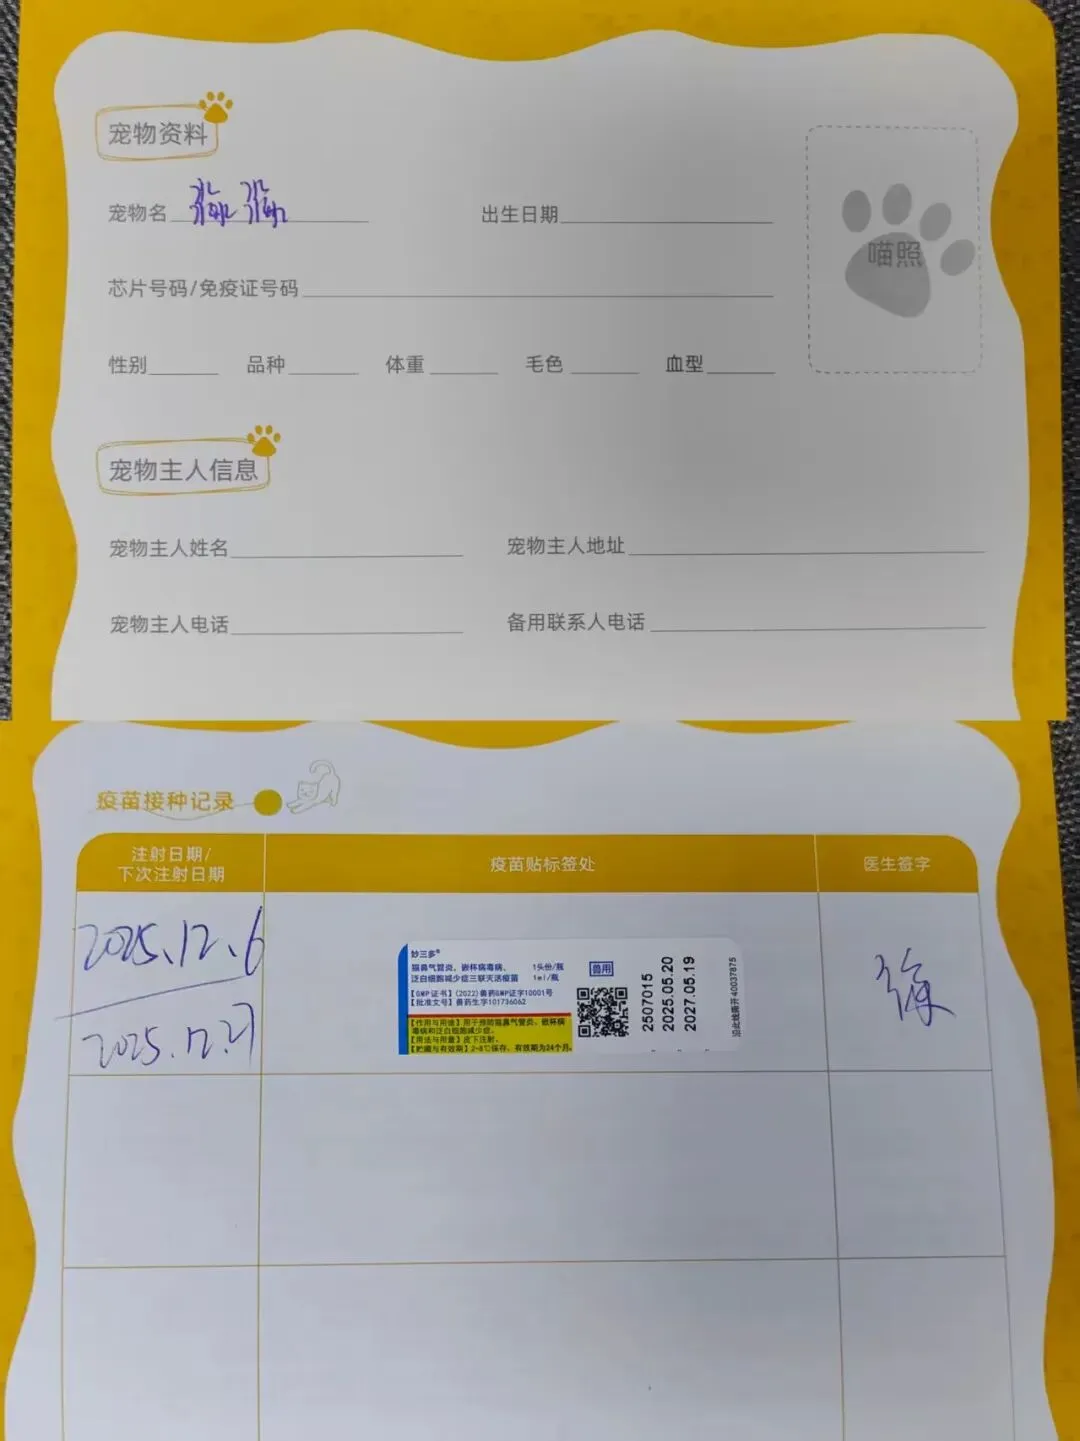 宠物资料
宠物名 出生日期
喵照
芯片号码/免疫证号码
性别 品种 体重 毛色 血型
宠物主人信息
宠物主人姓名 宠物主人地址
宠物主人电话 备用联系人电话
疫苗接种记录
注射日期/
下次注射日期
疫苗贴标签处
医生签字
2025.12.6
2025.12.27
妙三多®
猫鼻气管炎、嵌杯病毒病、 1头份/瓶
泛白细胞减少症三联灭活疫苗 1ml/瓶
兽用
【GMP证书】(2022)兽药GMP证字10001号
【批准文号】兽药生字101736062
【作用与用途】用于预防猫鼻气管炎、嵌杯病
毒病和泛白细胞减少症。
【用法与用量】皮下注射。
【贮藏与有效期】2~8℃保存，有效期为24个月。
2507015
2025.05.20
2027.05.19
沿此线撕开 40037875
徐